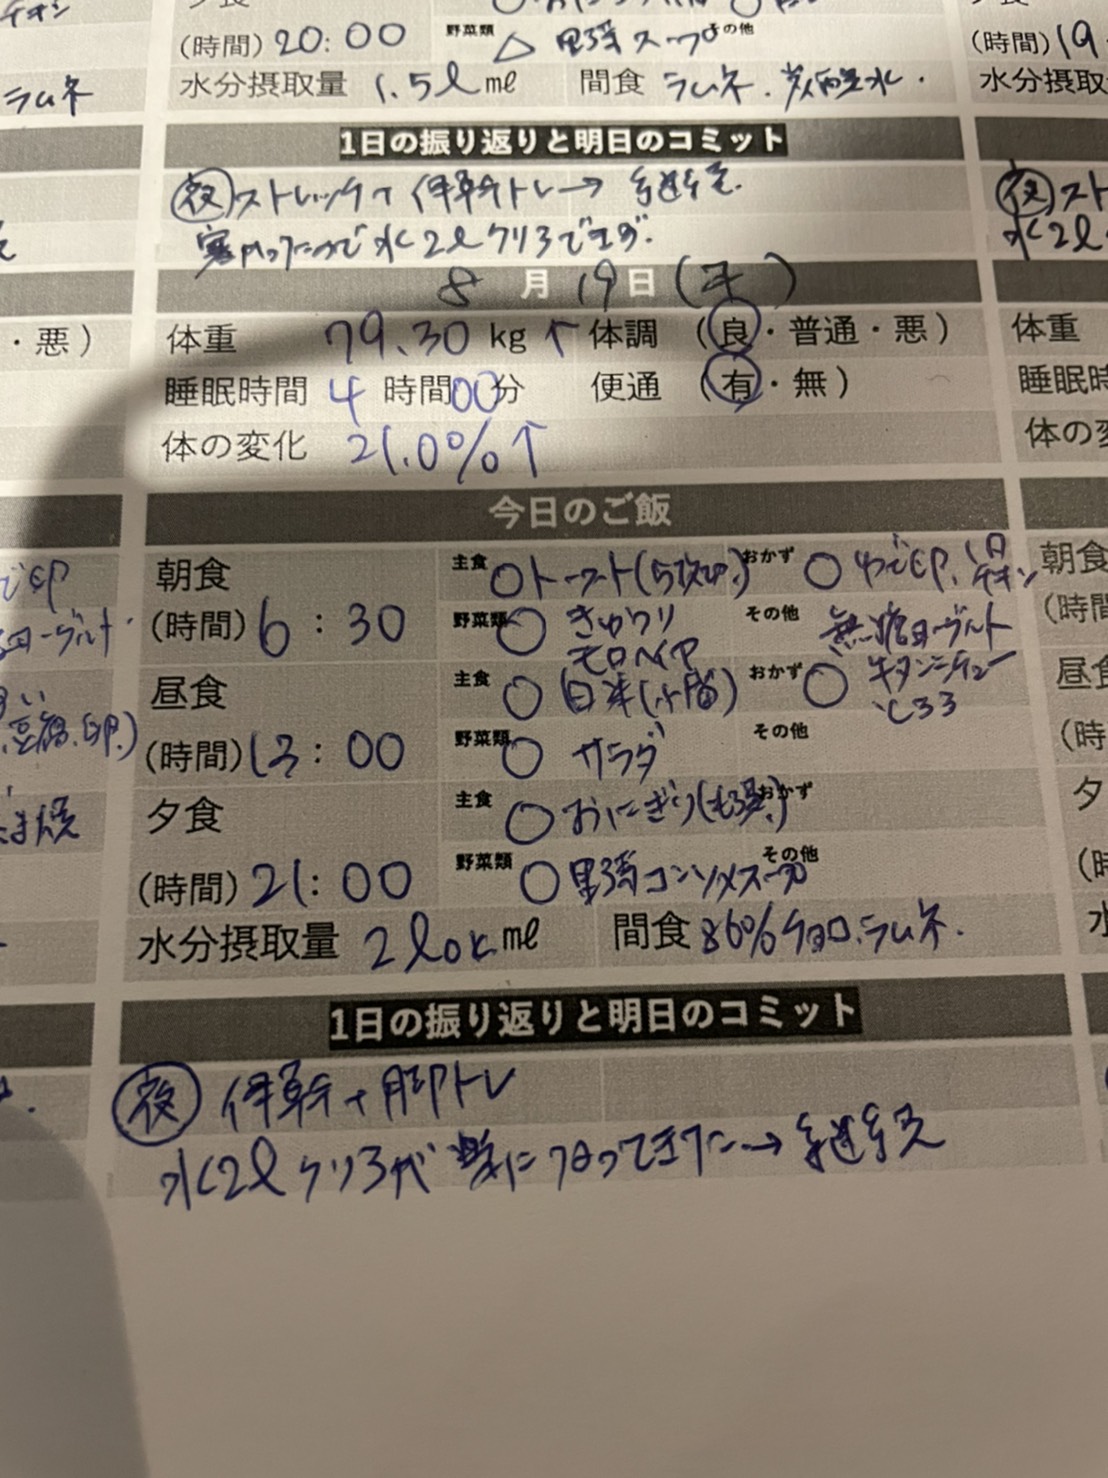 (時間) 20:00 野菜類 △ 野菜スープ その他
水分摂取量 1.5ℓ ml 間食 ラムネ、炭酸水.
(時間) 19
水分摂取
ラムネ
1日の振り返りと明日のコミット
夜 ストレッチ+体幹トレ→継続.
寒かったので水2ℓクリアできず.
夜 スト
水2ℓ
8月19日(火)
体重 79.30 kg ↑ 体調 (良・普通・悪)
睡眠時間 4時間00分 便通 (有・無)
体の変化 21.0% ↑
・悪)
体重
睡眠時
体の変
今日のご飯
朝食 主食 ○トースト(5枚切.) おかず ○ゆで卵、
(時間) 6:30 野菜類 ○きゅうり その他 無糖ヨーグルト
モロヘイヤ
昼食 主食 ○白米(小盛) おかず ○牛タンシチュー
とろろ
(時間) 13:00 野菜類 ○サラダ その他
夕食 主食 ○おにぎり(もち麦.) おかず
(時間) 21:00 野菜類 ○野菜コンソメスープ その他
水分摂取量 2ℓok ml 間食 86%チョコ、ラムネ.
で卵
ヨーグルト.
豆腐、卵.)
ま焼
朝食
(時間
昼食
(時
夕
1日の振り返りと明日のコミット
夜 体幹+脚トレ
水2ℓクリアが楽になってきた→継続